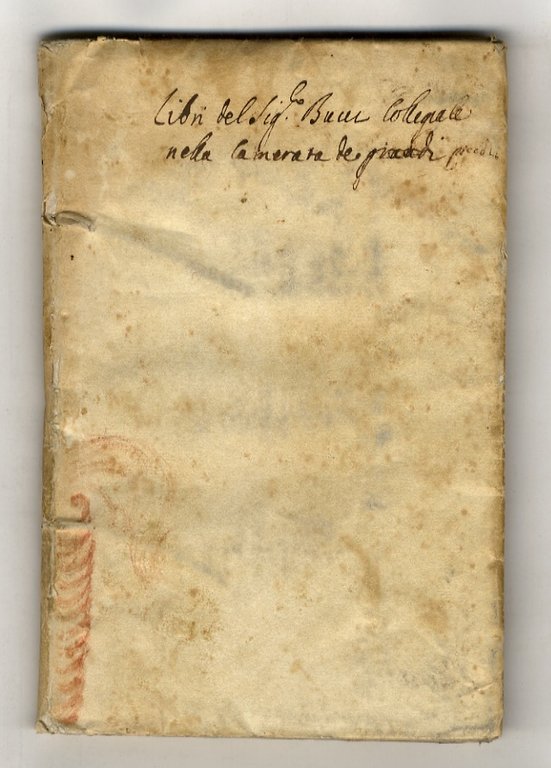 Libri del Sig.re Bucci Collegiale
nella Camerata de grandi